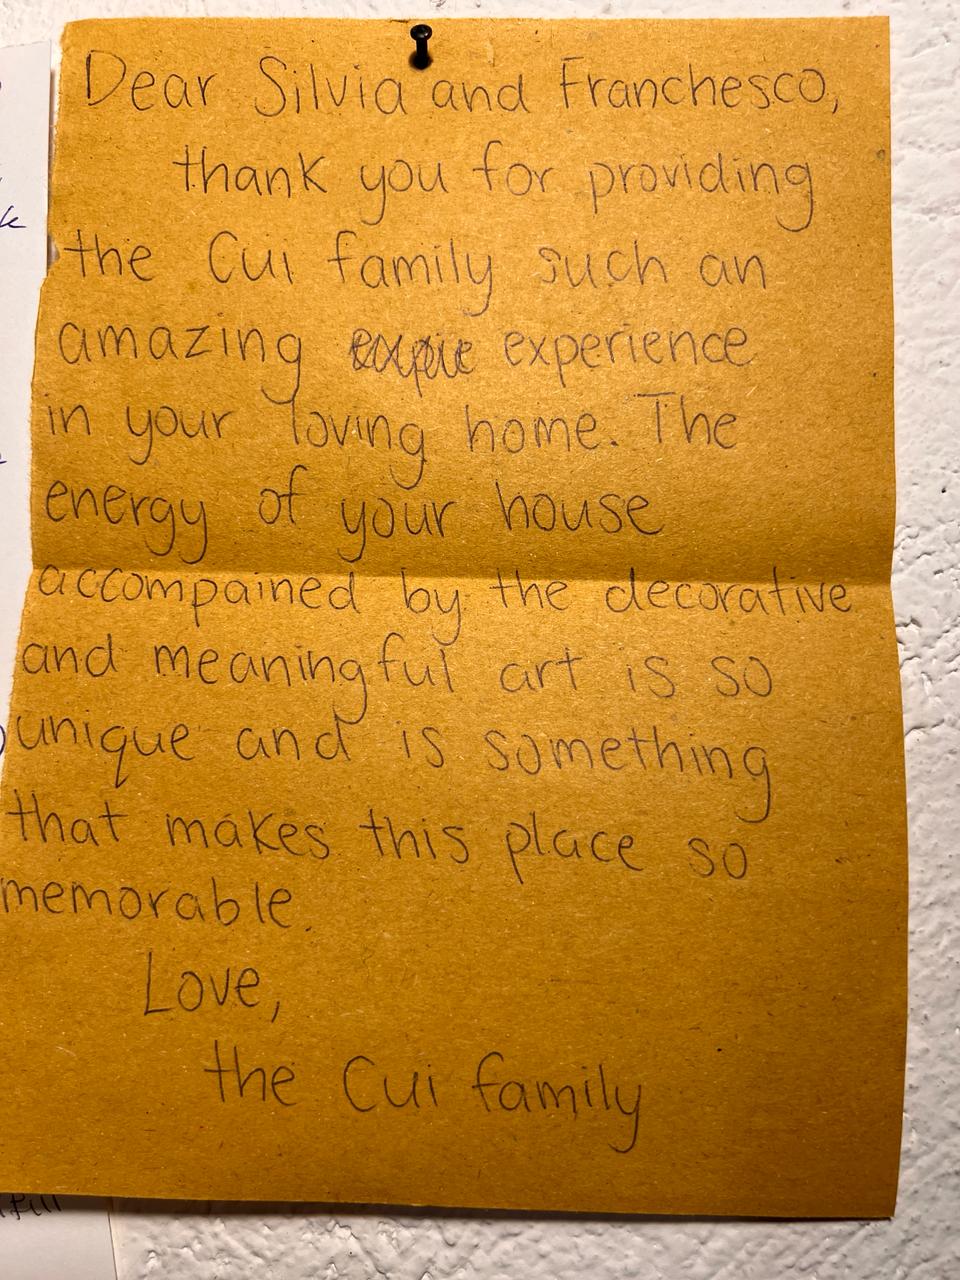 Dear Silvia and Franchesco,
thank you for providing
the Cui family such an
amazing experience
in your loving home. The
energy of your house
accompained by the decorative
and meaningful art is so
unique and is something
that makes this place so
memorable.
Love,
the Cui family